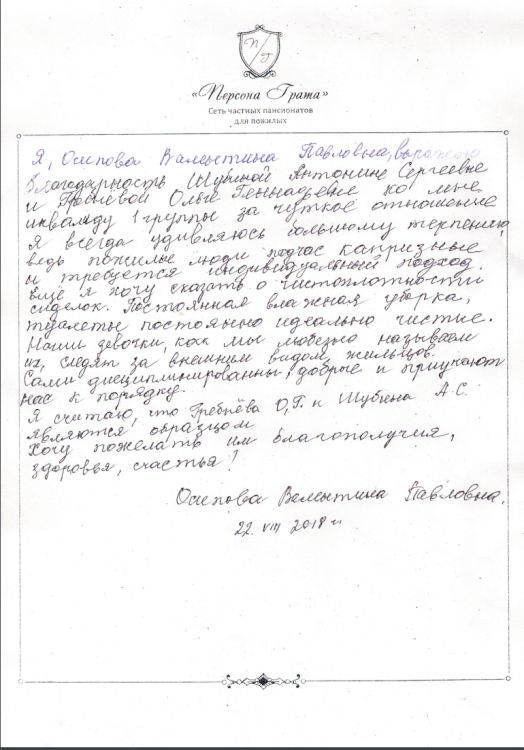 П/Г
«Персона Грата»
Сеть частных пансионатов
для пожилых
Я, Осипова Валентина Павловна, выражаю
благодарность Шубиной Антонине Сергеевне
и Гребнёвой Ольге Геннадьевне ко мне
инвалиду 1 группы за чуткое отношение
Я всегда удивляюсь большому терпению,
ведь пожилые люди подчас капризные
и требуется индивидуальный подход.
Ещё я хочу сказать о чистоплотности
сиделок. Постоянная влажная уборка,
туалеты постоянно идеально чистые.
Наши девочки, как мы любезно называем
их, следят за внешним видом жильцов.
Сами дисциплинированны, добрые и приучают
нас к порядку.
Я считаю, что Гребнёва О.Г. и Шубина А.С.
являются образцом
Хочу пожелать им благополучия,
здоровья, счастья!
Осипова Валентина Павловна.
22. VIII 2018 г